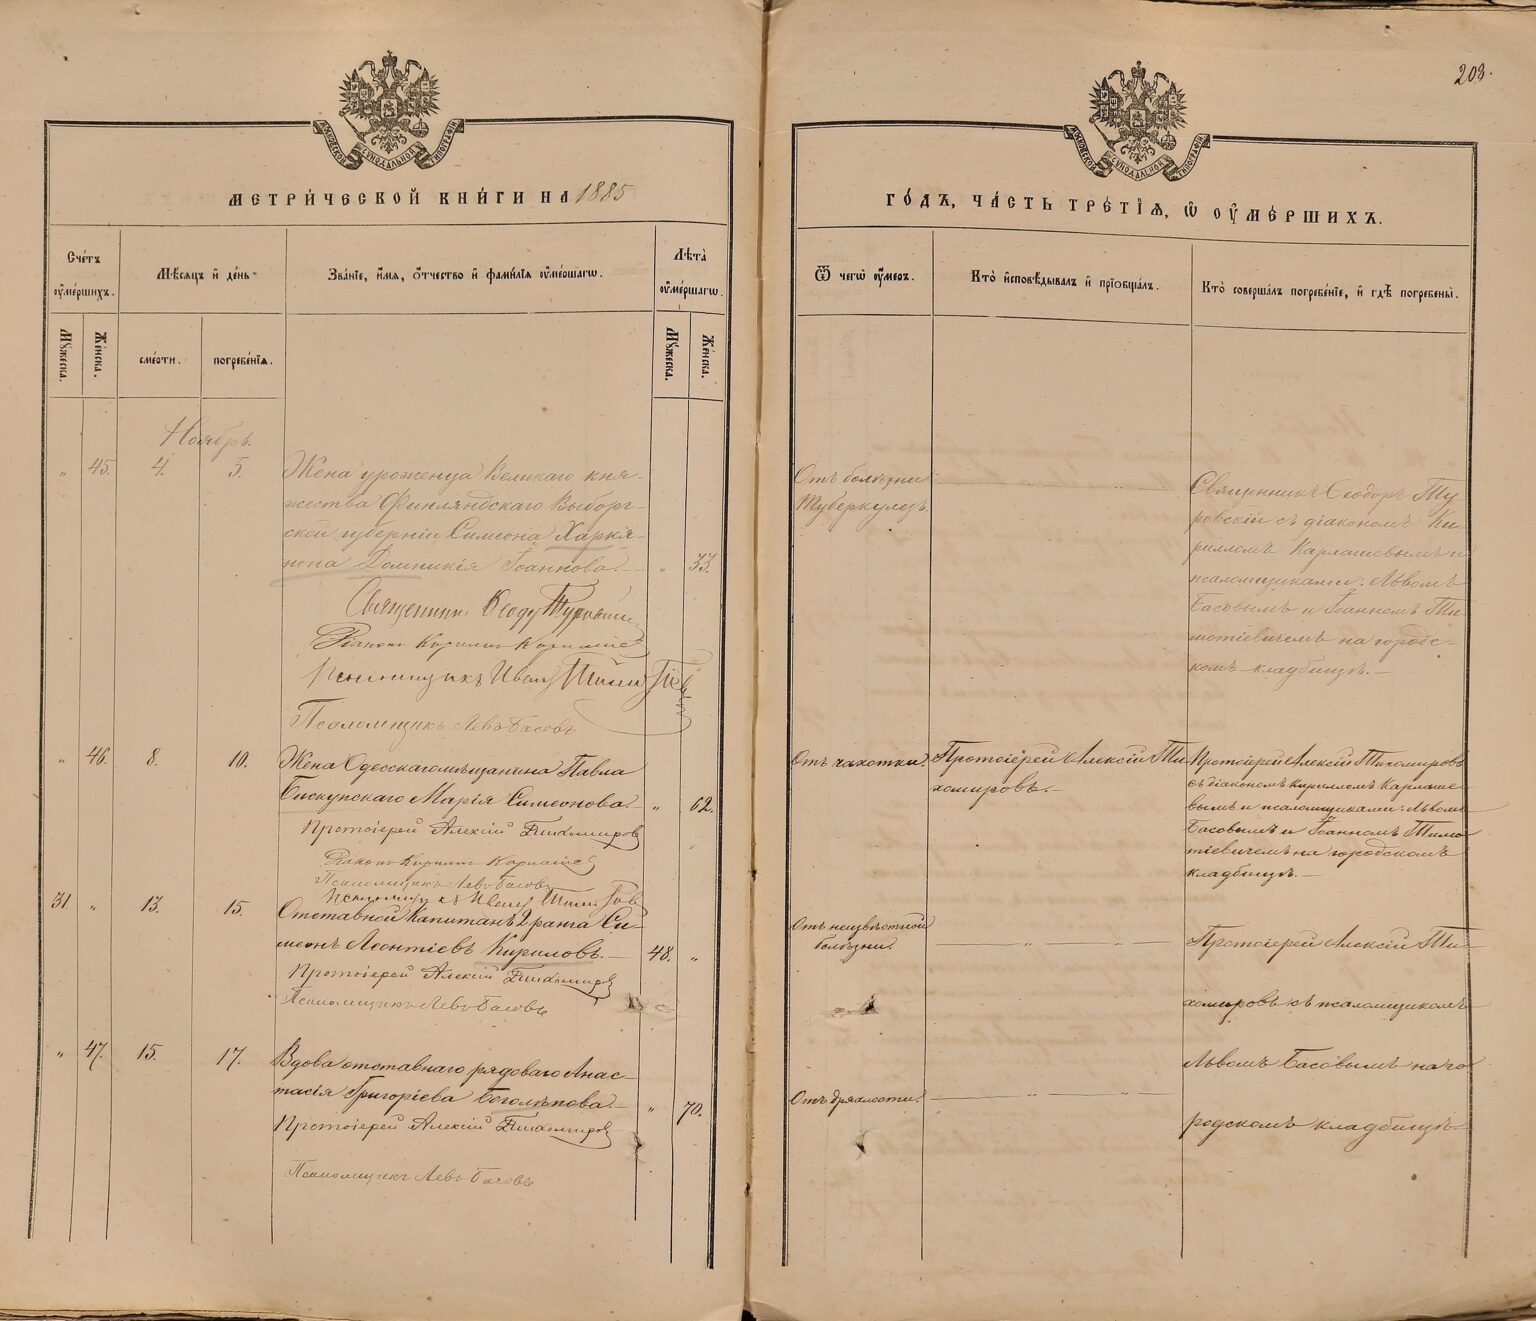 203.
МОСКОВСКОЙ СѴНОДАЛЬНОЙ ТИПОГРАФІИ
МОСКОВСКОЙ СѴНОДАЛЬНОЙ ТИПОГРАФІИ
МЕТРИ́ЧЕСКОЙ КНИ́ГИ НА 1885
ГО́ДЪ, ЧА́СТЬ ТРЕ́ТІѦ, Ѽ ОУ҆МЕ́РШИХЪ.
Сче́тъ оу҆ме́ршихъ.
Мѣ́сяцъ и҆ де́нь
Зва́нїе, и҆́мѧ, ѻ҆́тчество и҆ фами́лїѧ оу҆ме́ршагѡ.
Лѣ́та оу҆ме́ршагѡ.
Ѿ чегѡ̀ оу҆́меръ.
Кто̀ и҆сповѣ́дывалъ и҆ прїѻбща́лъ.
Кто̀ соверша́лъ погребе́нїе, и҆ гдѣ̀ погребены̀.
Мꙋ́жеска.
Же́нска.
сме́рти.
погребе́нїѧ.
Мꙋ́жеска.
Же́нска.
Ноябрь.
„ 45. 4. 5. Жена уроженца Великаго кня-
жества Финляндскаго Выборг-
ской губерніи Симеона Харкія-
нена Домникія Іоаннова. „ 33.
Священникъ Ѳеодоръ Туровскій
Діаконъ Кириллъ Карпашевъ
Псаломщикъ Иванъ Тимотіевичъ
Псаломщикъ Левъ Басовъ
Отъ болѣзни
Туберкулезъ.
— „ — „ —
Священникъ Ѳеодоръ Ту-
ровскій съ діакономъ Ки-
рилломъ Карпашевымъ и
псаломщиками: Львомъ
Басовымъ и Іоанномъ Ти-
мотіевичемъ на городс-
комъ кладбищѣ.—
„ 46. 8. 10. Жена Одесскаго мѣщанина Павла
Бискупскаго Марія Симеонова. „ 62.
Протоіерей Алексій Тихомировъ
Діаконъ Кириллъ Карпашевъ
Псаломщикъ Левъ Басовъ
Псаломщикъ Иванъ Тимотіевъ
Отъ чахотки.
Протоіерей Алексій Ти-
хомировъ.—
Протоіерей Алексій Тихомировъ
съ діакономъ Кирилломъ Карпаше-
вымъ и псаломщиками: Львомъ
Басовымъ и Іоанномъ Тимо-
тіевичемъ на городскомъ
кладбищѣ.—
31. „ 13. 15. Отставной Капитанъ 2 ранга Си-
меонъ Леонтіевъ Кириловъ.— 48. „
Протоіерей Алексій Тихомировъ
Псаломщикъ Левъ Басовъ
Отъ неизвѣстной
болѣзни.
— „ — „ —
Протоіерей Алексій Ти-
хомировъ съ псаломщикомъ
Львомъ Басовымъ на го-
родскомъ кладбищѣ.—
„ 47. 15. 17. Вдова отставнаго рядоваго Анас-
тасія Григоріева Боголѣпова.— „ 70.
Протоіерей Алексій Тихомировъ
Псаломщикъ Левъ Басовъ
Отъ дряхлости.
— „ — „ —